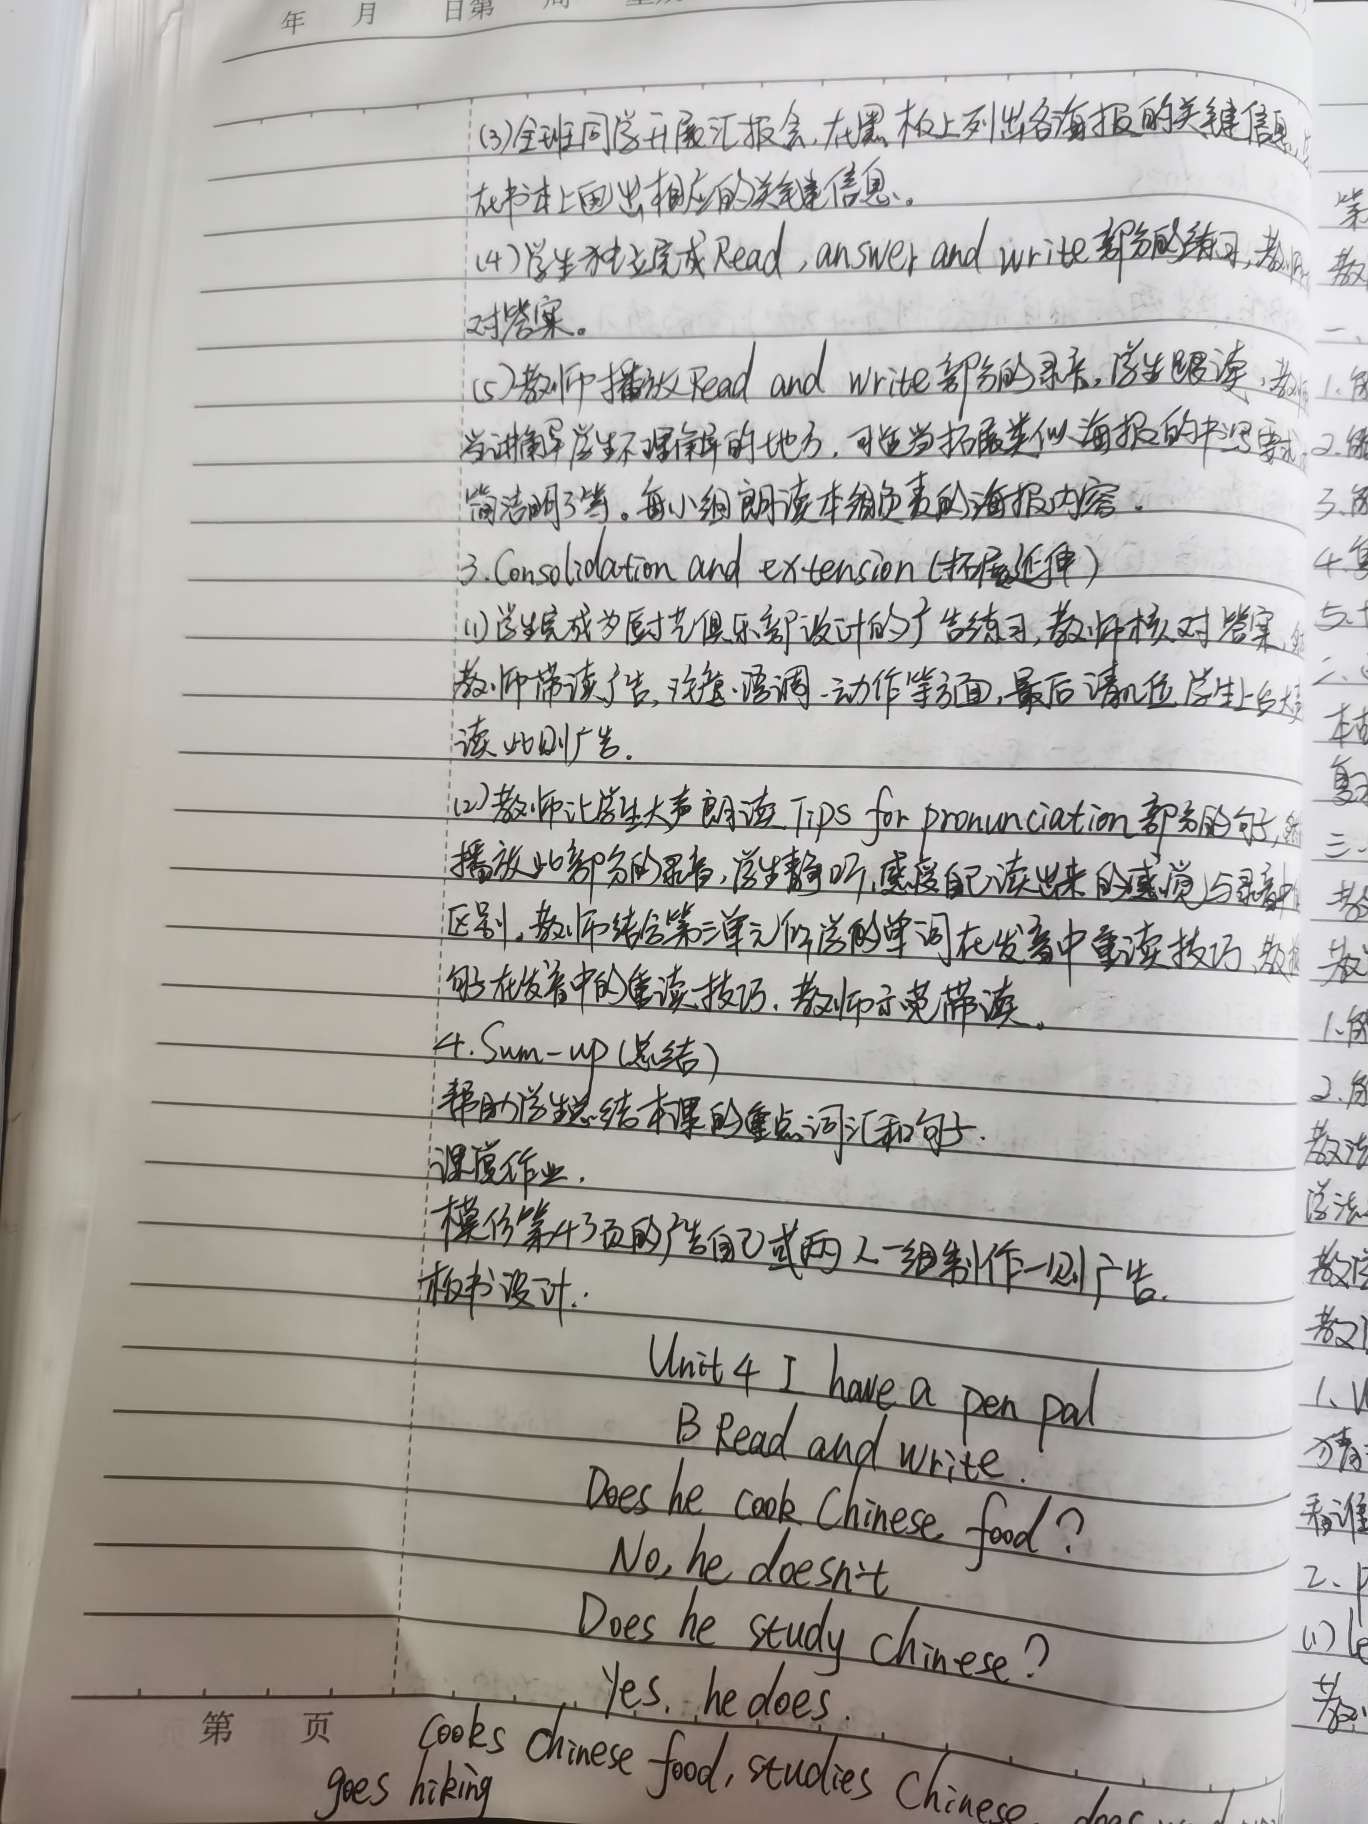 年 月 日 第 周
(3)全班同学开展汇报会,在黑板上列出各海报的关键信息,
在书本上画出相应的关键信息。
(4)学生独立完成Read, answer and write部分的练习,教师
对答案。
(5)教师播放Read and write部分的录音,学生跟读,教师
当讲解学生不理解的地方,可适当拓展类似海报的书写要求
简洁明了等。每小组朗读本组负责的海报内容。
3.Consolidation and extension(拓展延伸)
(1)学生完成为厨艺俱乐部设计的广告练习,教师核对答案,
教师带读广告,注意语调、动作等方面,最后请几位学生上台大声
读此则广告。
(2)教师让学生大声朗读Tips for pronunciation部分的句子,
播放此部分的录音,学生静听,感受自己读出来的感觉与录音中
区别。教师结合第三单元所学的单词在发音中重读技巧,教授
句子在发音中的重读技巧,教师示范带读。
4.Sum-up(总结)
帮助学生总结本课的重点词汇和句子.
课堂作业.
模仿第43页的广告自己或两人一组制作一则广告.
板书设计:
Unit 4 I have a pen pal
B Read and write.
Does he cook Chinese food?
No, he doesn't
Does he study Chinese?
Yes, he does.
第 页
cooks Chinese food, studies Chinese, does
goes hiking